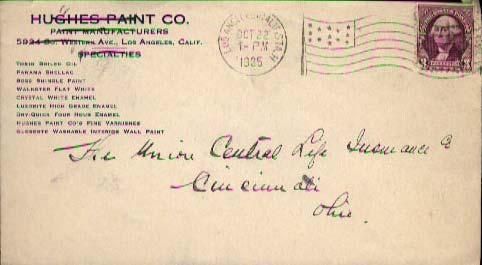 HUGHES PAINT CO.
PAINT MANUFACTURERS
5924 So. Western Ave., Los Angeles, Calif.
SPECIALTIES
Boiled Oil
Panama Shellac
Shingle Paint
Flat White
Crystal White Enamel
Luxorite High Grade Enamel
Dry-Quick Four Hour Enamel
Hughes Paint Co's Fine Varnishes
Washable Interior Wall Paint
LOS ANGELES
OCT 22
1 - PM
1935
3
The Union Central Life Insurance Co
Cincinnati
Ohio.